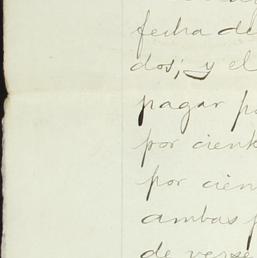 fecha de
dos; y el
pagar p
por cient
por cien
ambas p
de verse